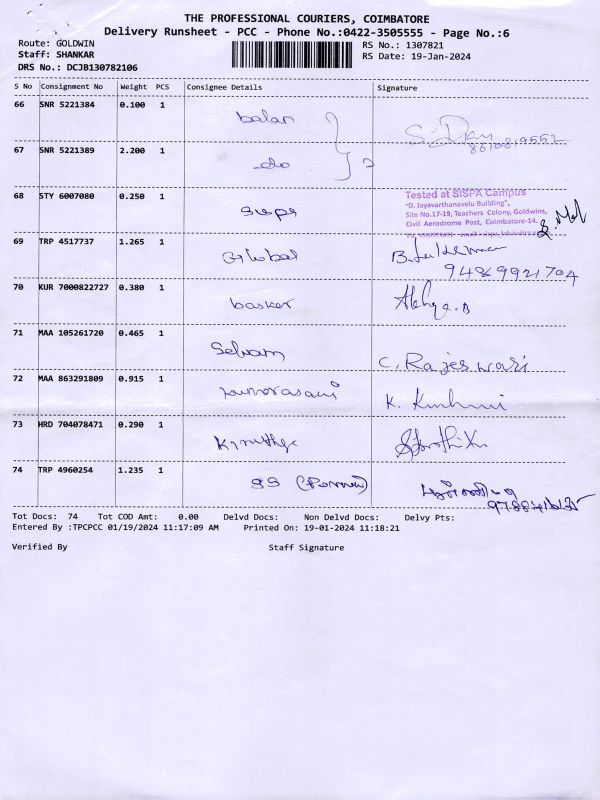 THE PROFESSIONAL COURIERS, COIMBATORE
Delivery Runsheet - PCC - Phone No.:0422-3505555 - Page No.:6
Route: GOLDWIN
RS No.: 1307821
Staff: SHANKAR
RS Date: 19-Jan-2024
DRS No.: DCJB130782106
S No Consignment No Weight PCS Consignee Details Signature
66 SNR 5221384 0.100 1 balan
67 SNR 5221389 2.200 1 do
68 STY 6007080 0.250 1
Tested at SISPA Campus
"D. Jayavarthanavelu Building",
Site No.17-19, Teachers Colony, Goldwins,
Civil Aerodrome Post, Coimbatore-14.
69 TRP 4517737 1.265 1 Global B.
94869921704
70 KUR 7000822727 0.380 1 basker
71 MAA 105261720 0.465 1 Selvam C. Rajeswari
72 MAA 863291809 0.915 1 K.
73 HRD 704078471 0.290 1
74 TRP 4960254 1.235 1
Tot Docs: 74 Tot COD Amt: 0.00 Delvd Docs: Non Delvd Docs: Delvy Pts:
Entered By :TPCPCC 01/19/2024 11:17:09 AM Printed On: 19-01-2024 11:18:21
Verified By Staff Signature